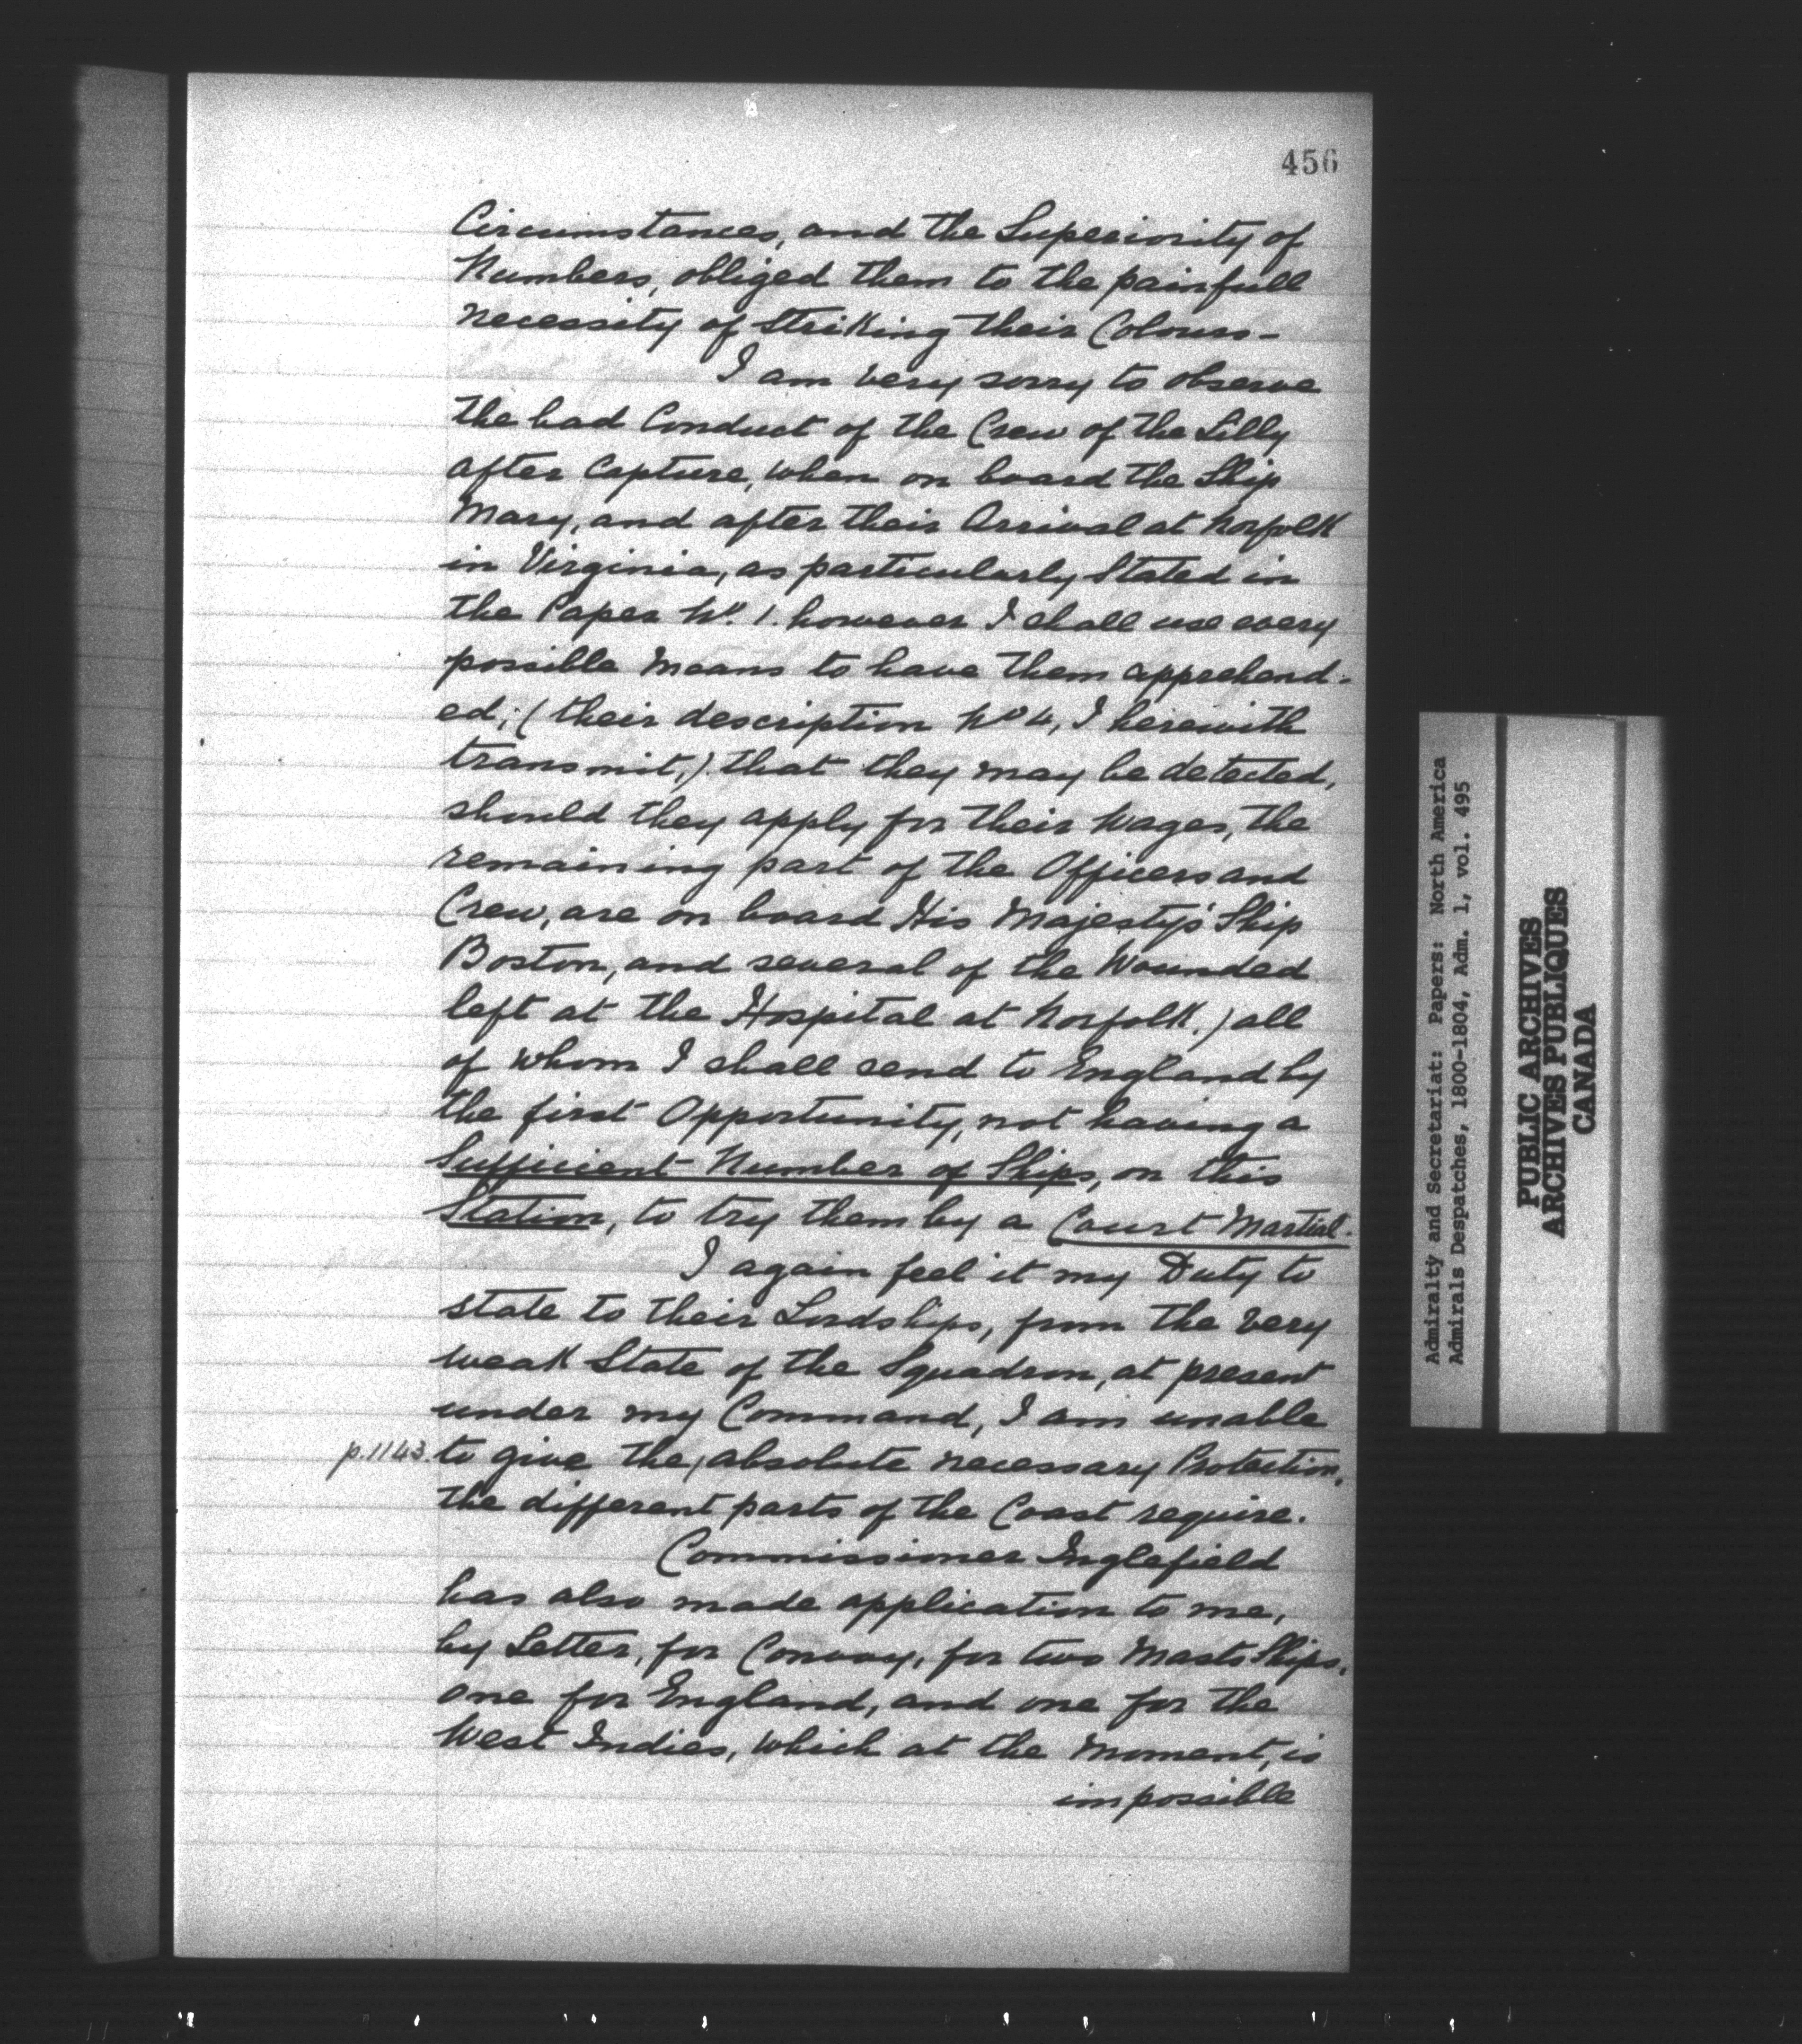 456
Circumstances, and the Superiority of
Numbers, obliged them to the painfull
necessity of striking their Colours-
I am very sorry to observe
the bad Conduct of the Crew of the Lilly
after Capture, when on board the Ship
Mary, and after their Arrival at Norfolk
in Virginia, as particularly Stated in
the Paper No. 1. however I shall use every
possible means to have them apprehend-
ed; (their description No 4, I herewith
transmit,) that they may be detected,
should they apply for their Wages, the
remaining part of the Officers and
Crew, are on board His Majesty's Ship
Boston, and several of the Wounded
left at the Hospital at Norfolk.) all
of whom I shall send to England by
the first Opportunity, not having a
Sufficient Number of Ships, on this
Station, to try them by a Court Martial.
I again feel it my Duty to
state to their Lordships, from the very
weak State of the Squadron, at present
under my Command, I am unable
p.1143. to give the, absolute necessary Protection,
the different parts of the Coast require.
Commissioner Inglefield
has also made application to me,
by Letter, for Convoy, for two Masts Ships,
one for England, and one for the
West Indies, which at the Moment, is
impossible
Admiralty and Secretariat: Papers: North America
Admirals Despatches, 1800-1804, Adm. 1, vol. 495
PUBLIC ARCHIVES
ARCHIVES PUBLIQUES
CANADA